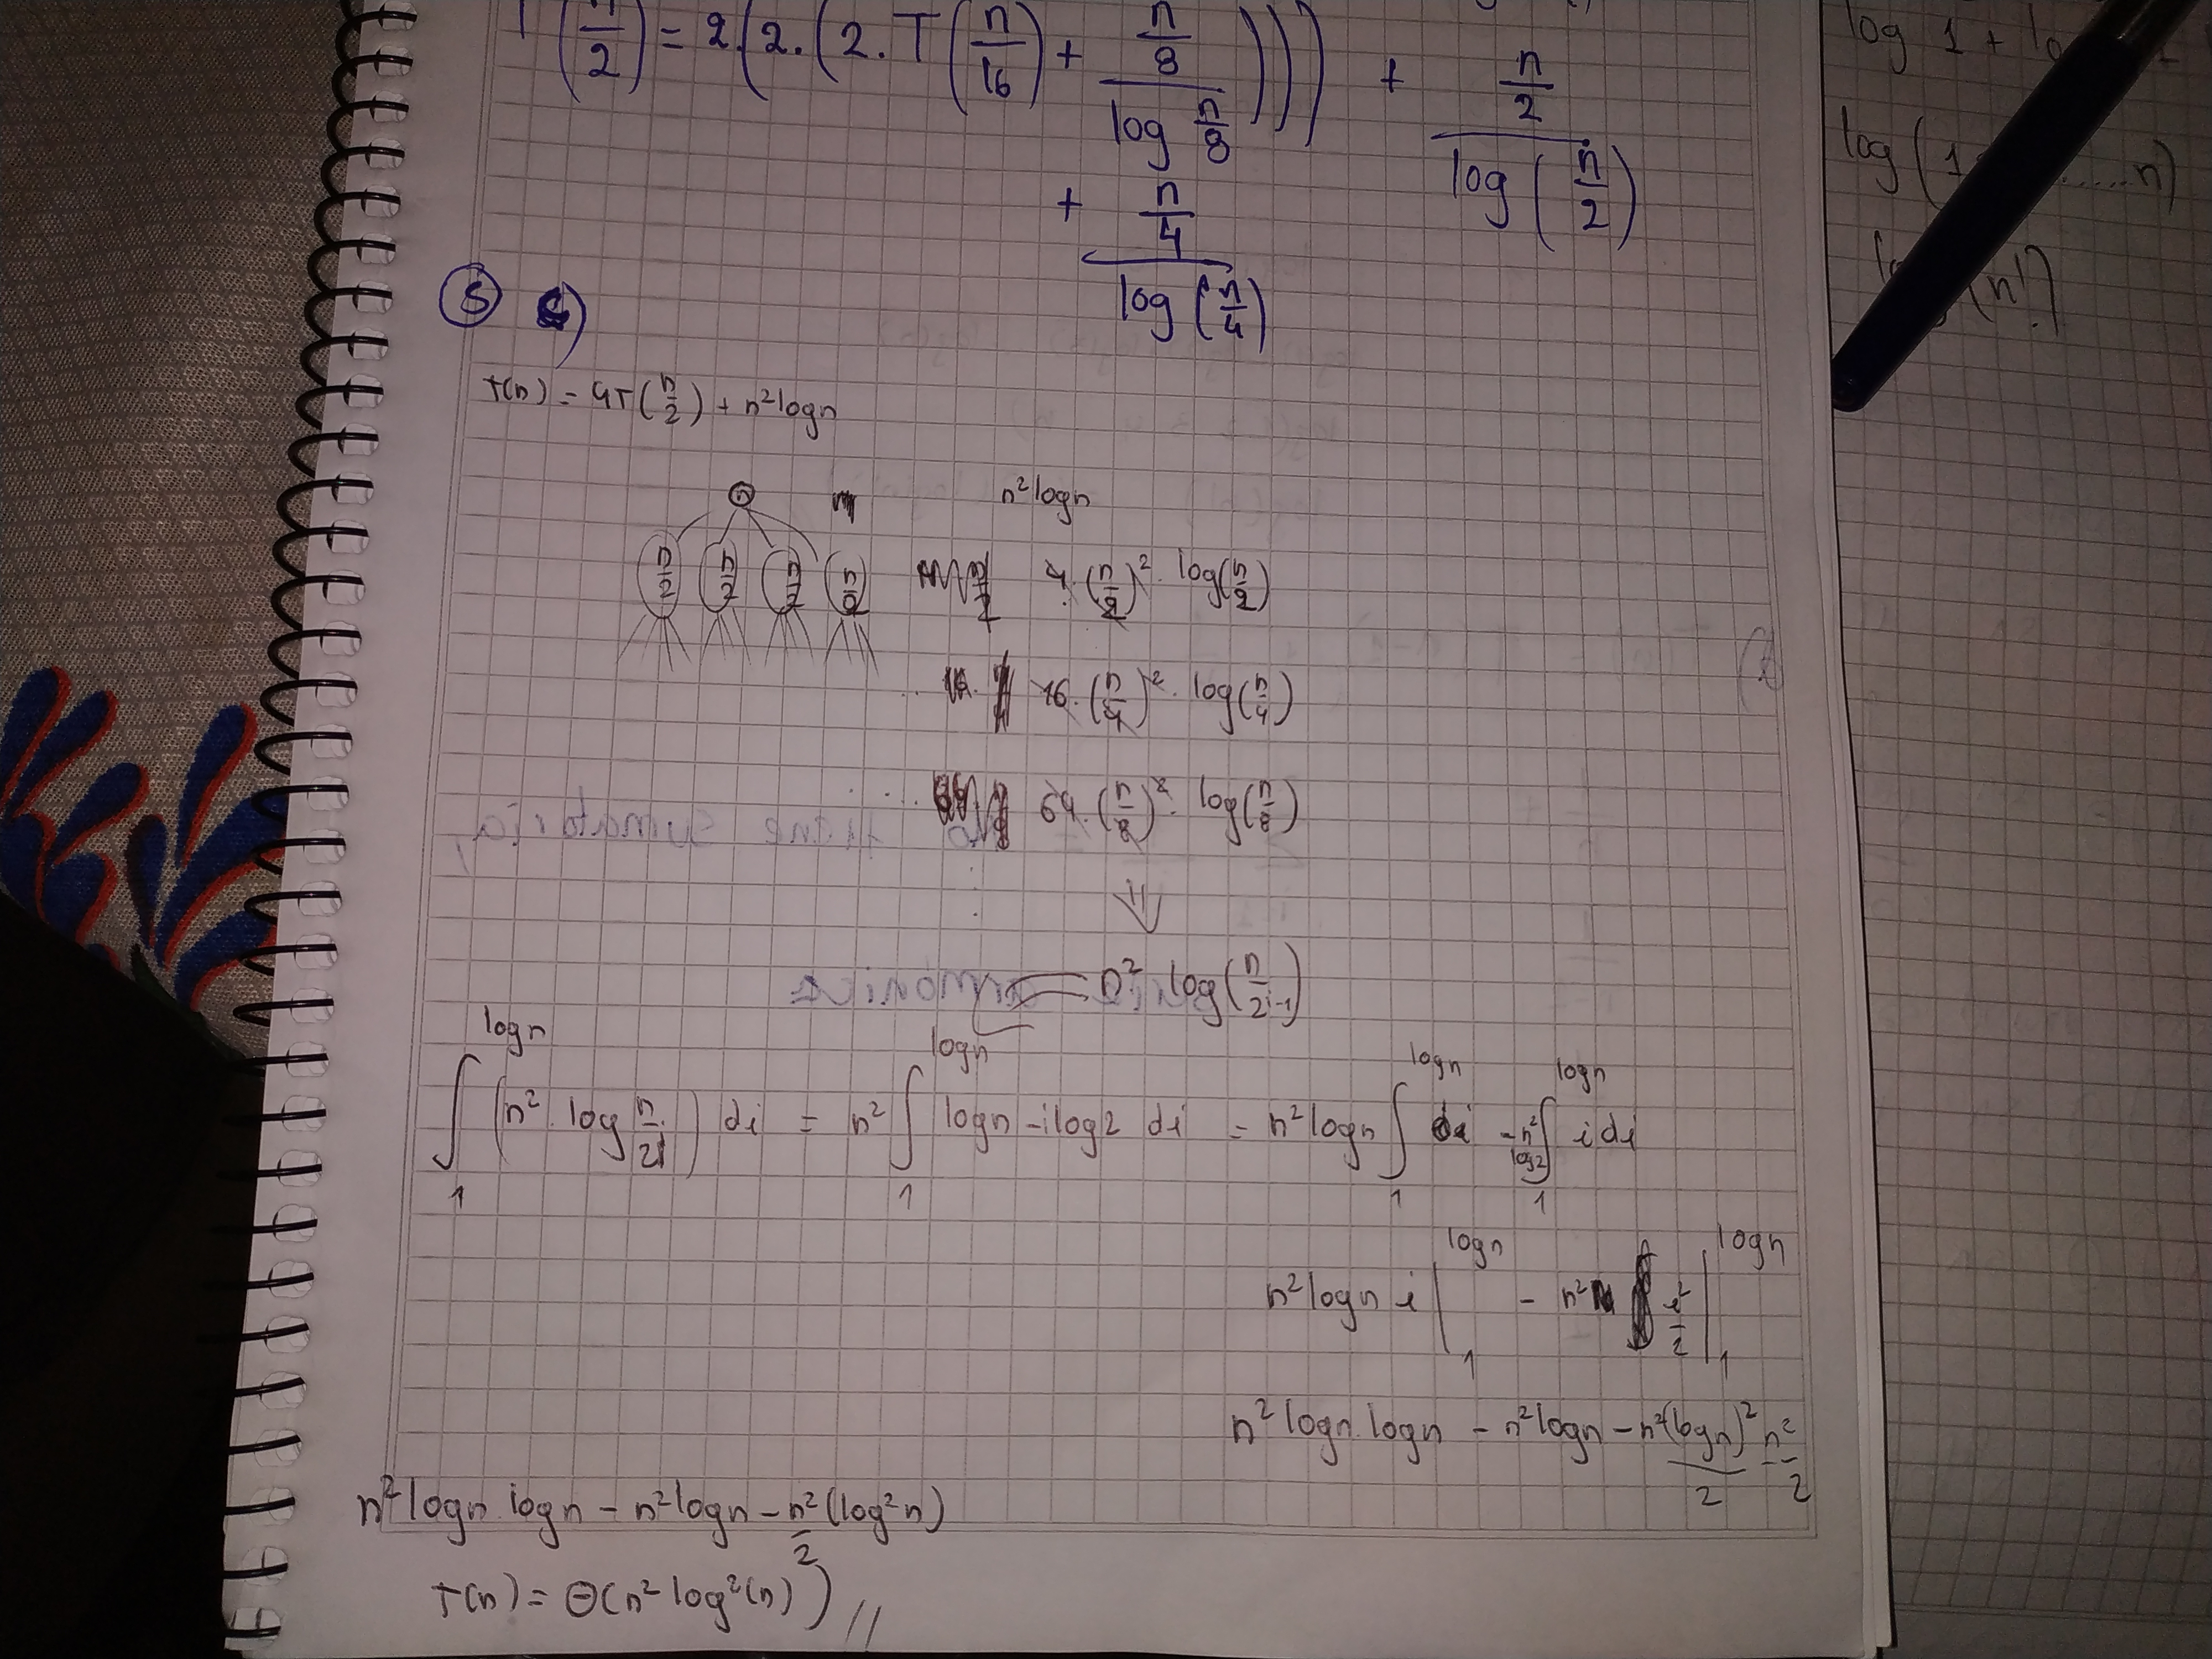 (n/2) = 2.(2.(2.T(n/16) + (n/8)/(log n/8)))) + (n/2)/(log (n/2))
+ (n/4)/(log (n/4))
5 c)
T(n) = 4T(n/2) + n² log n
n n² log n
n/2 n/2 n/2 n/2 4.(n/2)². log(n/2)
16.(n/4)². log(n/4)
64.(n/8)². log(n/8)
⇓
n² log(n/2^(i-1))
∫₁^(log n) (n². log n/2^i) di = n² ∫₁^(log n) log n - i log 2 di = n² log n ∫₁^(log n) di - n² log 2 ∫₁^(log n) i di
n² log n i |₁^(log n) - n² i²/2 |₁^(log n)
n² log n. log n - n² log n - n²(log n)²/2 - n²/2
n² log n. log n - n² log n - n²/2 (log² n)
T(n) = Θ(n² log²(n)) //
log 1 +
log (1 ......n)
(n!)